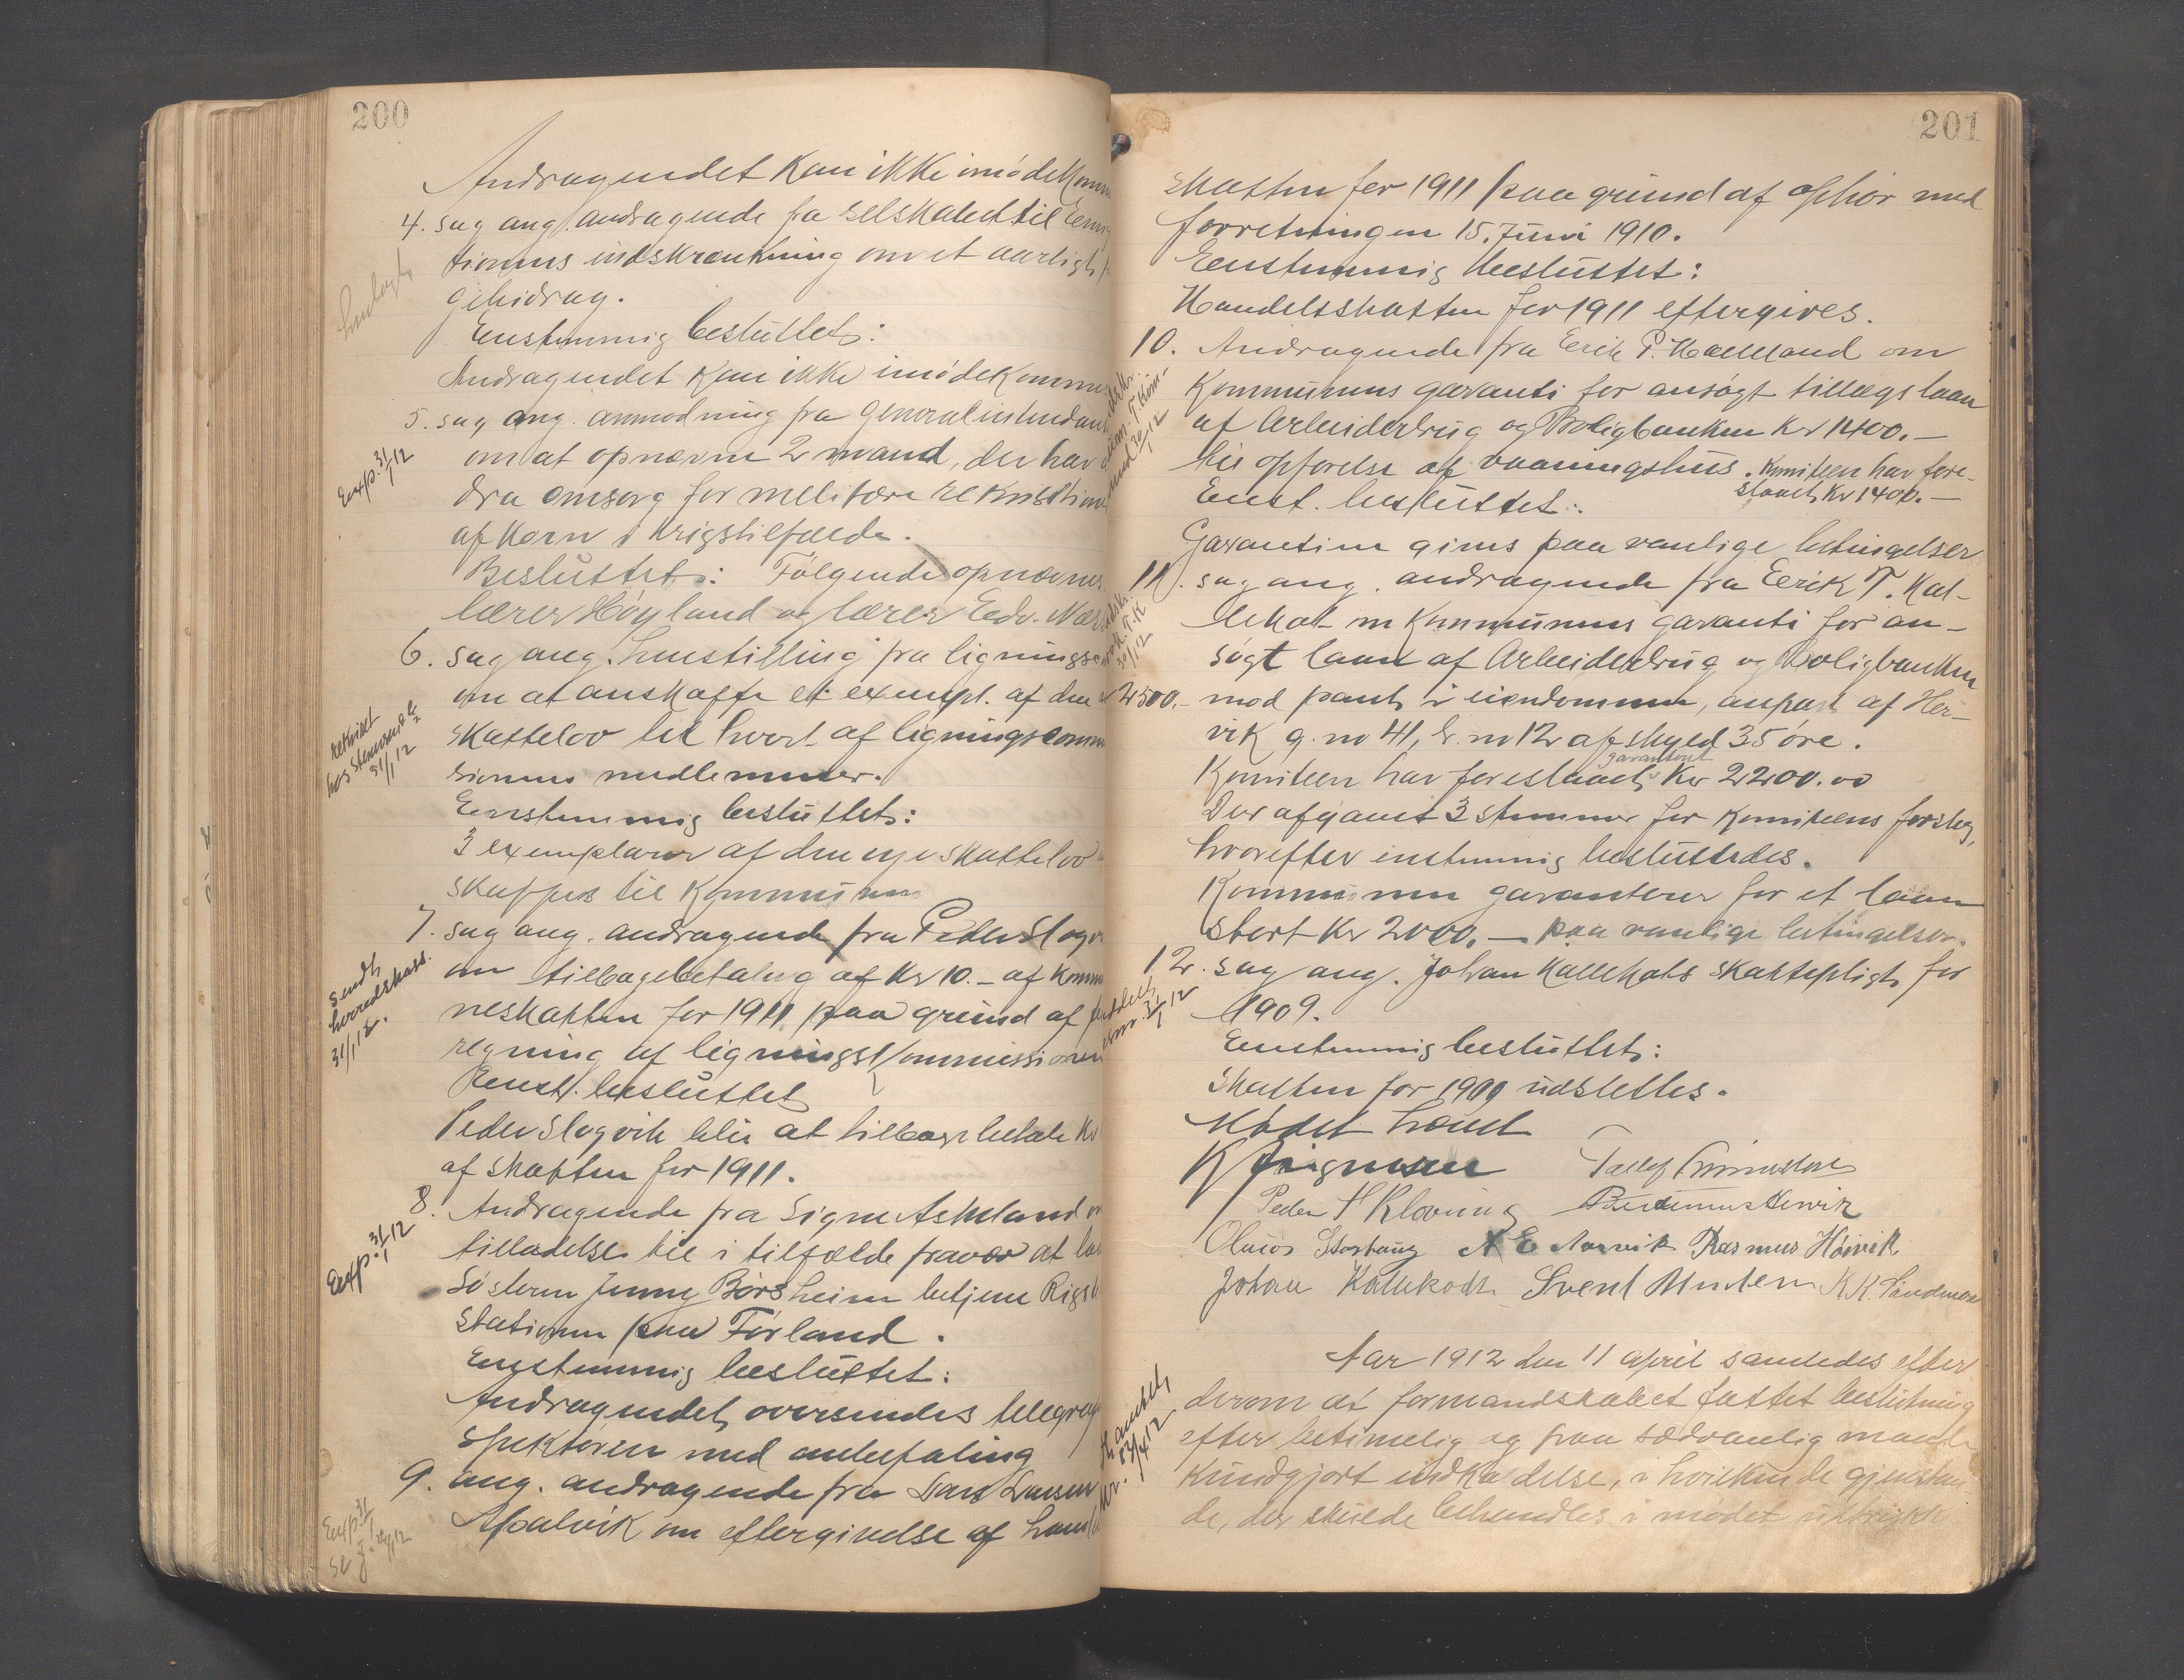 200
Andragendet kan ikke imødekomm
4. sag ang. andragende fra selskabet til Emig
tionens indskrænkning om et aarligt
gebidrag.
Enstemmig besluttet:
Andragendet kan ikke imødekomme
5. sag ang. anmodning fra Generalintendan
om at opnævne 2 mand, der har
dra omsorg for melitære rekvisition
af korn i krigstilfælde.
Besluttet: Følgende opnævnes
lærer Høyland og lærer Edv. Næs
6. sag ang. henstilling fra ligningsco
om at anskaffe et exempl. af den
skattelov til hvert af ligningscomm
sionens medlemmer.
Eenstemmig besluttet:
3 exemplarer af den nye skattelov
skaffes til Kommunen
7. sag ang. andragende fra Peder Slogv
om tilbagebetaling af Kr 10.- af Komm
neskatten for 1911 paa grund af
regning af ligningskommissionen
Eenst. besluttet
Peder Slogvik blir at tilbagebetale Kr
af skatten for 1911.
8. Andragende fra Signe Askeland om
tilladelse til i tilfælde fravær at la
Søsteren Jenny Børsheim betjene Rigst
stationen paa Førland.
Enstemmig besluttet:
Andragendet oversendes telegraf
spektøren med anbefaling
9. ang. andragende fra Lars Larsen
Apalvik om eftergivelse af hand
Exp. 31/1 12
rekvirt
hos stenersen &
31/1 12
sendt
herredskass.
31/1 12.
Exp. 31/1 12
Exp 31/1
201
skatten for 1911 paa grund af ophør med
forretningen 15. Juni 1910.
Eenstemmig besluttet:
Handelsskatten for 1911 eftergives.
10. Andragende fra Erik P. Kalleland om
Kommunens garanti for ansøgt tillægslaan
af Arbeiderbrug og Boligbanken Kr 1400.-
til opførelse af vaaningshus. Komiteen har fore-
slaaet Kr 1400.-
Eenst. besluttet:
Garantien gives paa vanlige betingelser
11. sag ang. andragende fra Eerik T. Kal-
lekot om Kommunens garanti for an-
søgt laan af Arbeiderbrug og Boligbanken
2500.- mod pant i eiendommen, anpart af Her-
vik g. no 41, b. no 12 af skyld 35 øre.
Komiteen har foreslaaet garantert Kr 2200.00
Der afgaves 3 stemmer for Komiteens forslag,
hvorefter enstemmig besluttedes.
Kommunen garanterer for et laan
stort Kr 2000.- paa vanlige betingelser.
12. sag ang. Johan Kallekots skattepligt for
1909.
Eenstemmig besluttet:
Skatten for 1909 udslettes.
Mødet hævet
Peder H Kloving
A E Aarvik Rasmus Høivik
Johan Kallekodt Svend K K Sandmoen
Aar 1912 den 11 april samledes efter
derom af formandskabet fattet beslutning
efter betimelig og paa sædvanlig maade
kundgjort indkaldelse, i hvilken de gjenstan
de, der skulde behandles i mødet udtrykke